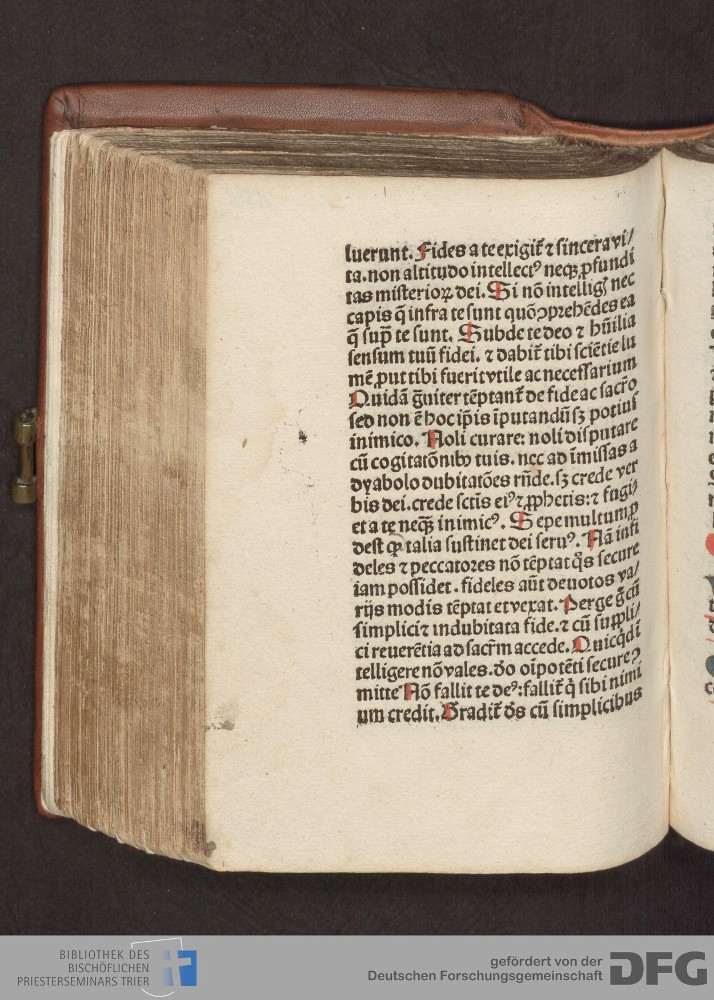 luerunt. Fides a te exigit᷑ ⁊ sincera vi/
ta. non altitudo intellectꝰ neqꝫ ꝓfundi
tas misterioꝝ dei. Si nō intelligꝭ nec
capis q̄ infra te sunt quō ꝯprehēdes ea
q̄ sup̄ te sunt. Subde te deo ⁊ hūilia
sensum tuū fidei. ⁊ dabit᷑ tibi sciētie lu
mē ꝓut tibi fuerit vtile ac necessarium
Quidā g̅uiter tēptant᷑ de fide ac sacr̄o
sed non ē hoc ip̄is īputandū sꝫ potius
inimico. Noli curare: noli disputare
cū cogitatōnibꝰ tuis. nec ad īmissas a
dyabolo dubitatōes rn̄de. sꝫ crede ver
bis dei. crede sctīs eiꝰ ⁊ ꝓphetis: ⁊ fugi/
et a te neq̄ꝫ inimicꝰ. Sepe multum ꝓ
dest ꝙ talia sustinet dei seruꝰ. Nā infi
deles ⁊ peccatores nō tēptat q̊s secure
iam possidet. fideles aūt deuotos va/
rijs modis tēptat et vexat. Perge g̊ cū
simplici ⁊ indubitata fide. ⁊ cū suppli/
ci reuerētia ad sacr̄m accede. Quicq̇d ī
telligere nō vales. do oīpotēti secure ꝯ
mitte Nō fallit te deꝰ: fallit᷑ q̇ sibi nimi
um credit. Gradit᷑ ds̄ cū simplicibus
BIBLIOTHEK DES
BISCHÖFLICHEN
PRIESTERSEMINARS TRIER
gefördert von der
Deutschen Forschungsgemeinschaft
DFG